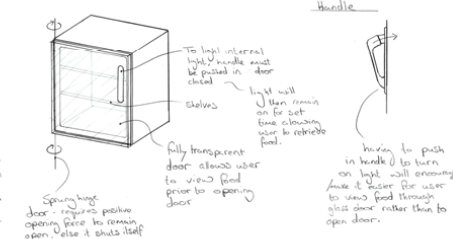 Handle
To light internal
light, handle must
be pushed in door
closed
light will
then remain
on for set
time allowing
user to retrieve
food.
shelves
fully transparent
door allows user
to view food
prior to opening
door
Sprung hinge
door - requires positive
opening force to remain
open, else it shuts itself
having to push
in handle to turn
on light will encourag
/make it easier for user
to view food through
glass door rather than to
open door.